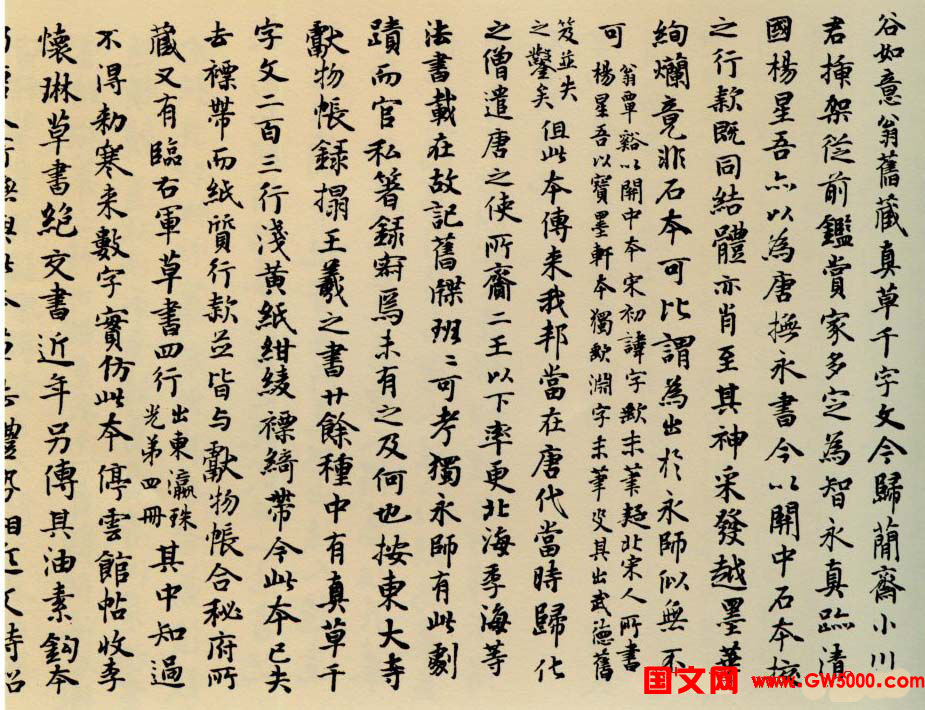 谷如意翁舊藏真草千字文今歸簡齋小川
君插架從前鑑賞家多定為智永真跡清
國楊星吾亦以為唐撫永書今以關中石本挍
之行款既同結體亦肖至其神采發越墨華
絢爛竟非石本可比謂為出於永師似無不
可
翁覃谿以關中本宋初諱字缺末筆疑北宋人所書
楊星吾以寶墨軒本獨缺淵字末筆定其出武德舊
笈並失
之鑿矣
但此本傳来我邦當在唐代當時歸化
之僧遣唐之使所齎二王以下率更北海季海等
法書載在故記舊牒班二可考獨永師有此劇
蹟而官私著録焉未有之及何也按東大寺
獻物帳録搨王羲之書廿餘種中有真草千
字文二百三行淺黃紙紺綾褾綺帶今此本已失
去褾帶而紙質行款並皆与獻物帳合秘府所
藏又有臨右軍草書四行
出東瀛珠
光弟四冊
其中知過
不得勅寒来數字實仿此本停雲館帖收李
懷琳草書絕交書近年另傳其油素鈎本
国文网 www.GW5000.com